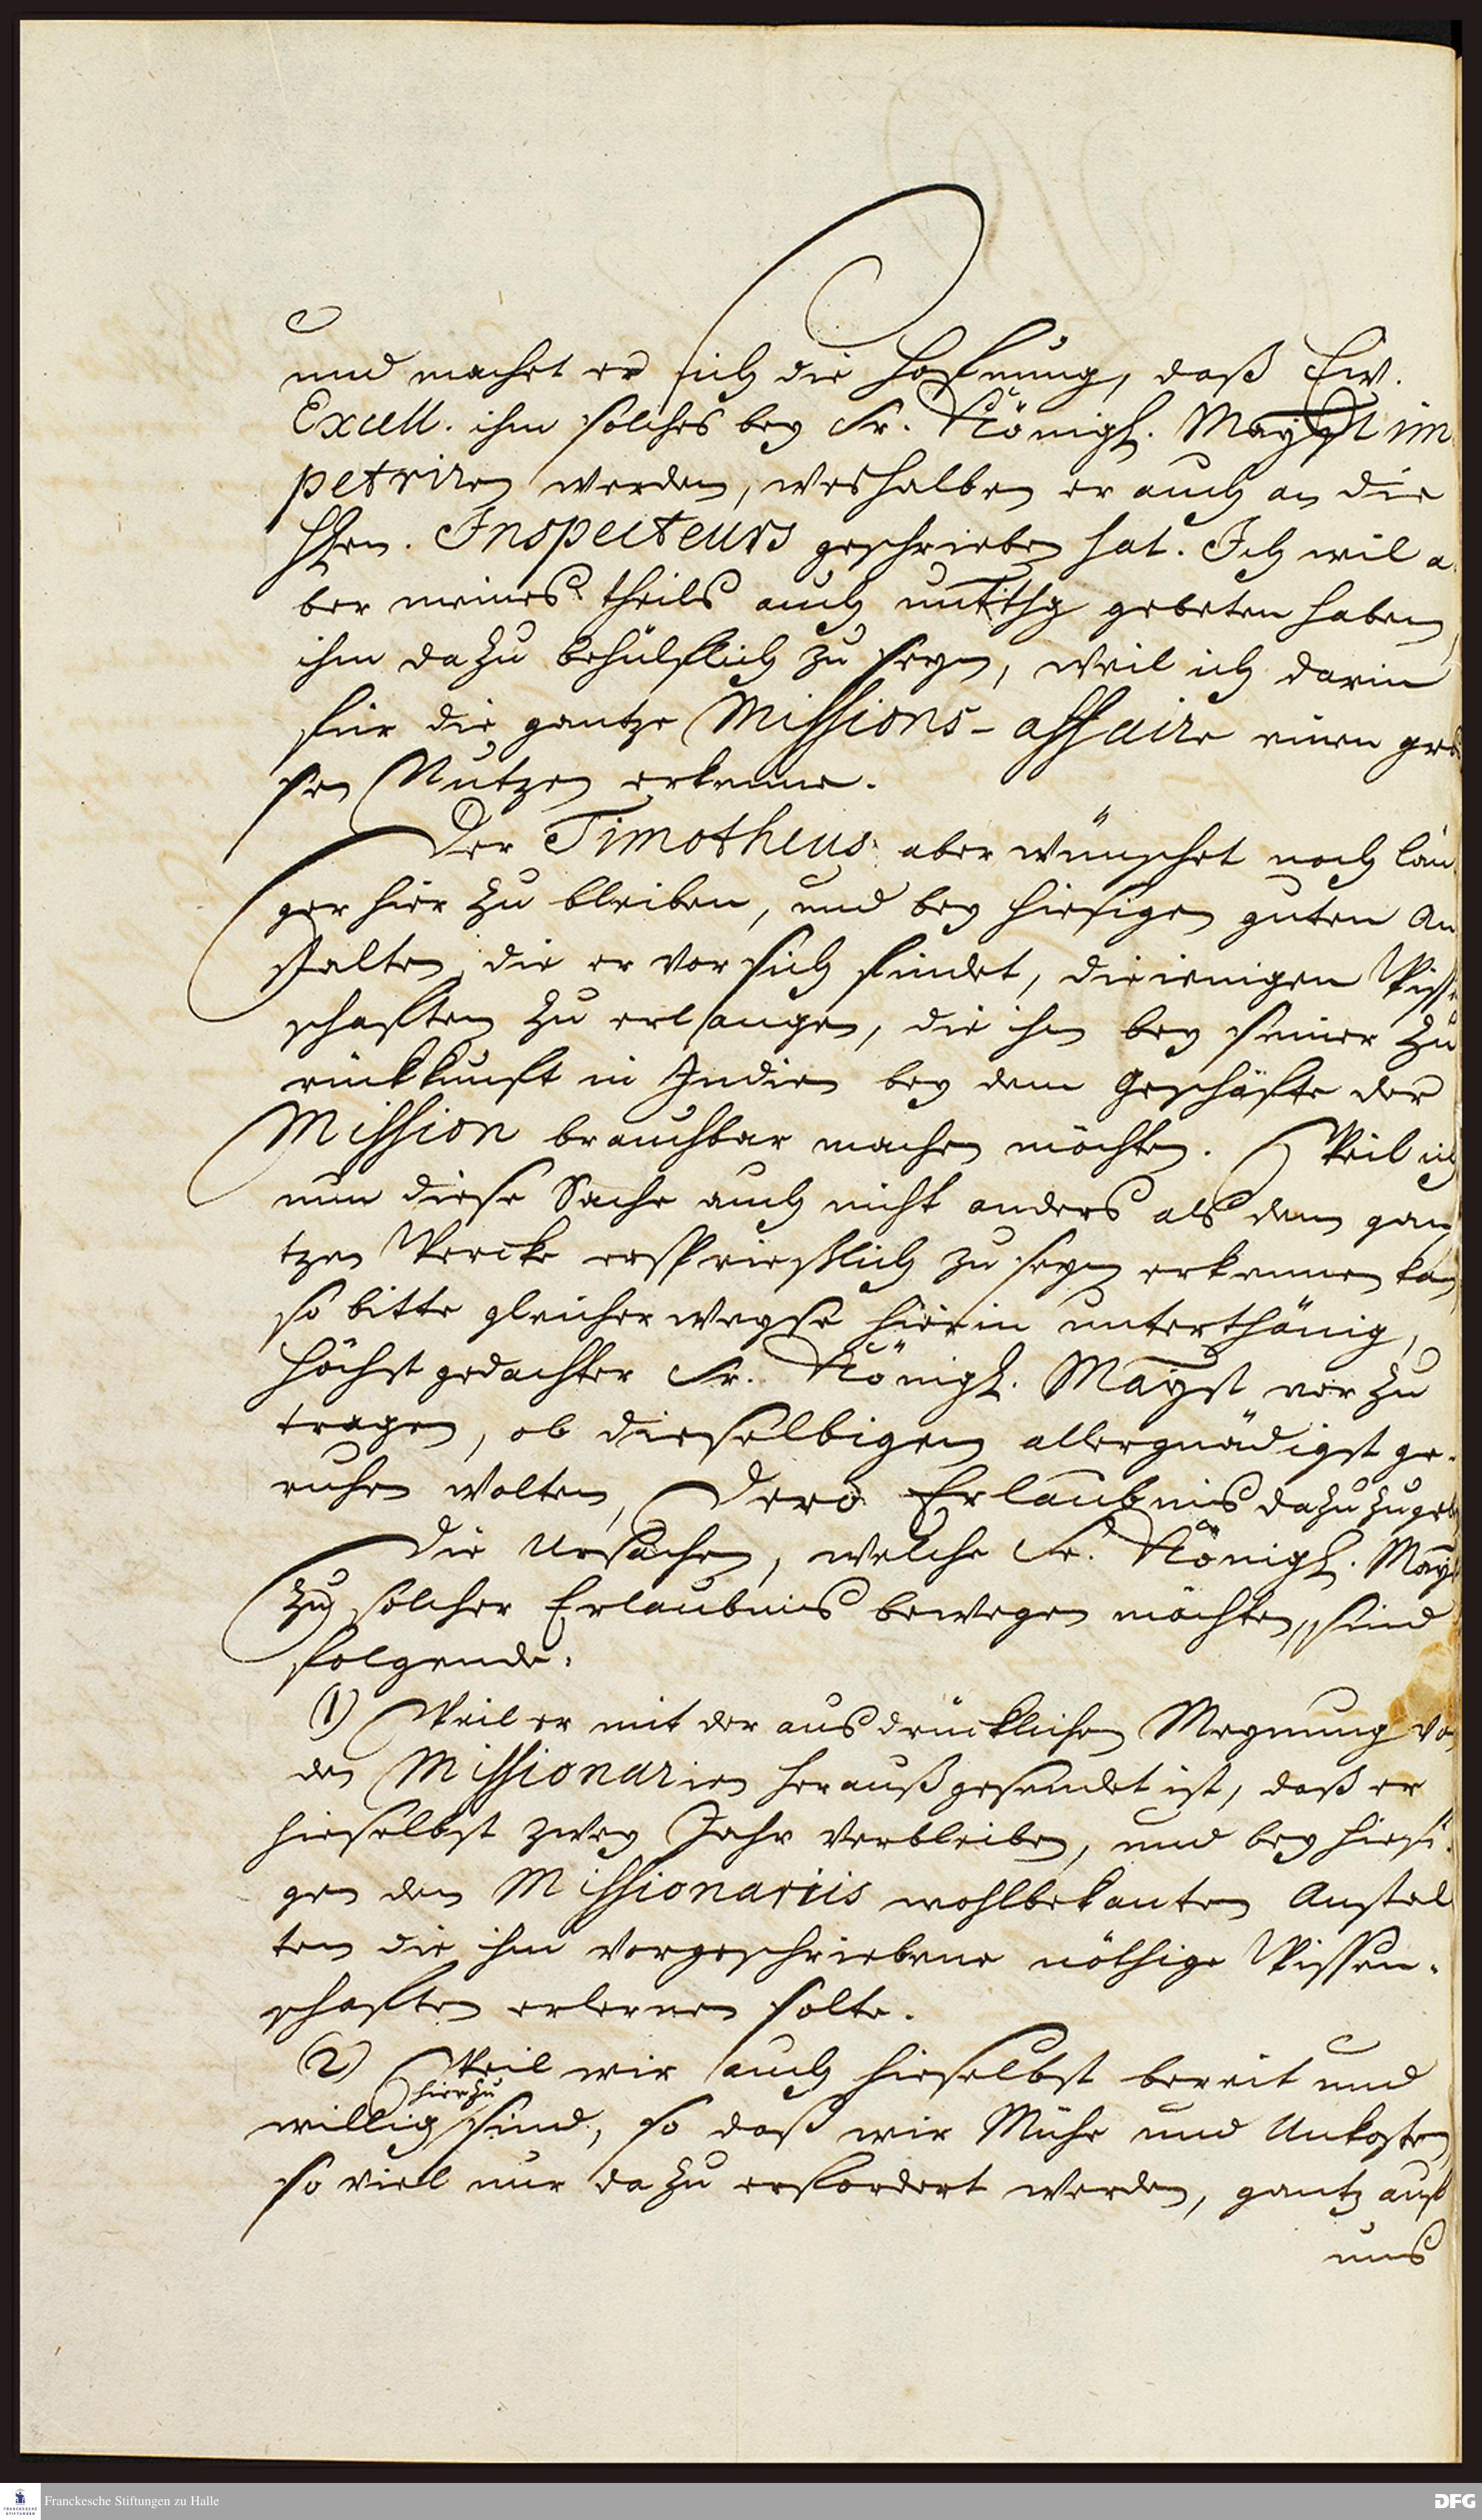 und machet er sich die Hofnung, daß Ew.
Excell. ihm solches bey Sr. Königl. Mayst im
petriren werden, weshalben er auch an die
HHen. Inspecteurs geschrieben hat. Ich wil a
ber meines theils auch untthg gebeten haben,
ihm dazu behülflich zu seyn, weil ich darin
für die gantze Missions-affaire einen gro
sen Nutzen erkenne.
Der Timotheus aber wünschet noch län
ger hier zu bleiben, und bey hiesigen guten An
stalten, die er vor sich findet, dieienigen Wisse
schaften zu erlangen, die ihn bey seiner Zu
rückkunft in Indien bey dem Geschäfte der
Mission brauchbar machen möchten. Weil ich
nun diese Sache auch nicht anders als dem gan
tzen Wercke ersprießlich zu seyn erkennen kan
so bitte gleicher weyse hierin unterthänig,
höchst gedachter Sr. Königl. Mayst vor zu
tragen, ob dieselbigen allergnädigst ge-
ruhen wolten, Dero Erlaubnis dazu zu geb
Die Ursachen, welche Sr. Königl. May
zu solcher Erlaubnis bewegen möchten, sind
folgende.
(1) Weil er mit der ausdrücklichen Meynung vo
den Missionarien heraußgesendet ist, daß er
hieselbst zwey Jahr verbleiben, und bey hiesi-
gen den Missionariis wohlbekanten Anstal
ten die ihm vorgeschriebene nöthige Wissen-
schaften erlernen solte.
(2) Weil wir auch hieselbst bereit und
hierzu
willig sind, so daß wir Mühe und Unkosten
so viel nur dazu erfordert werden, gantz auf
uns
Franckesche Stiftungen zu Halle
DFG